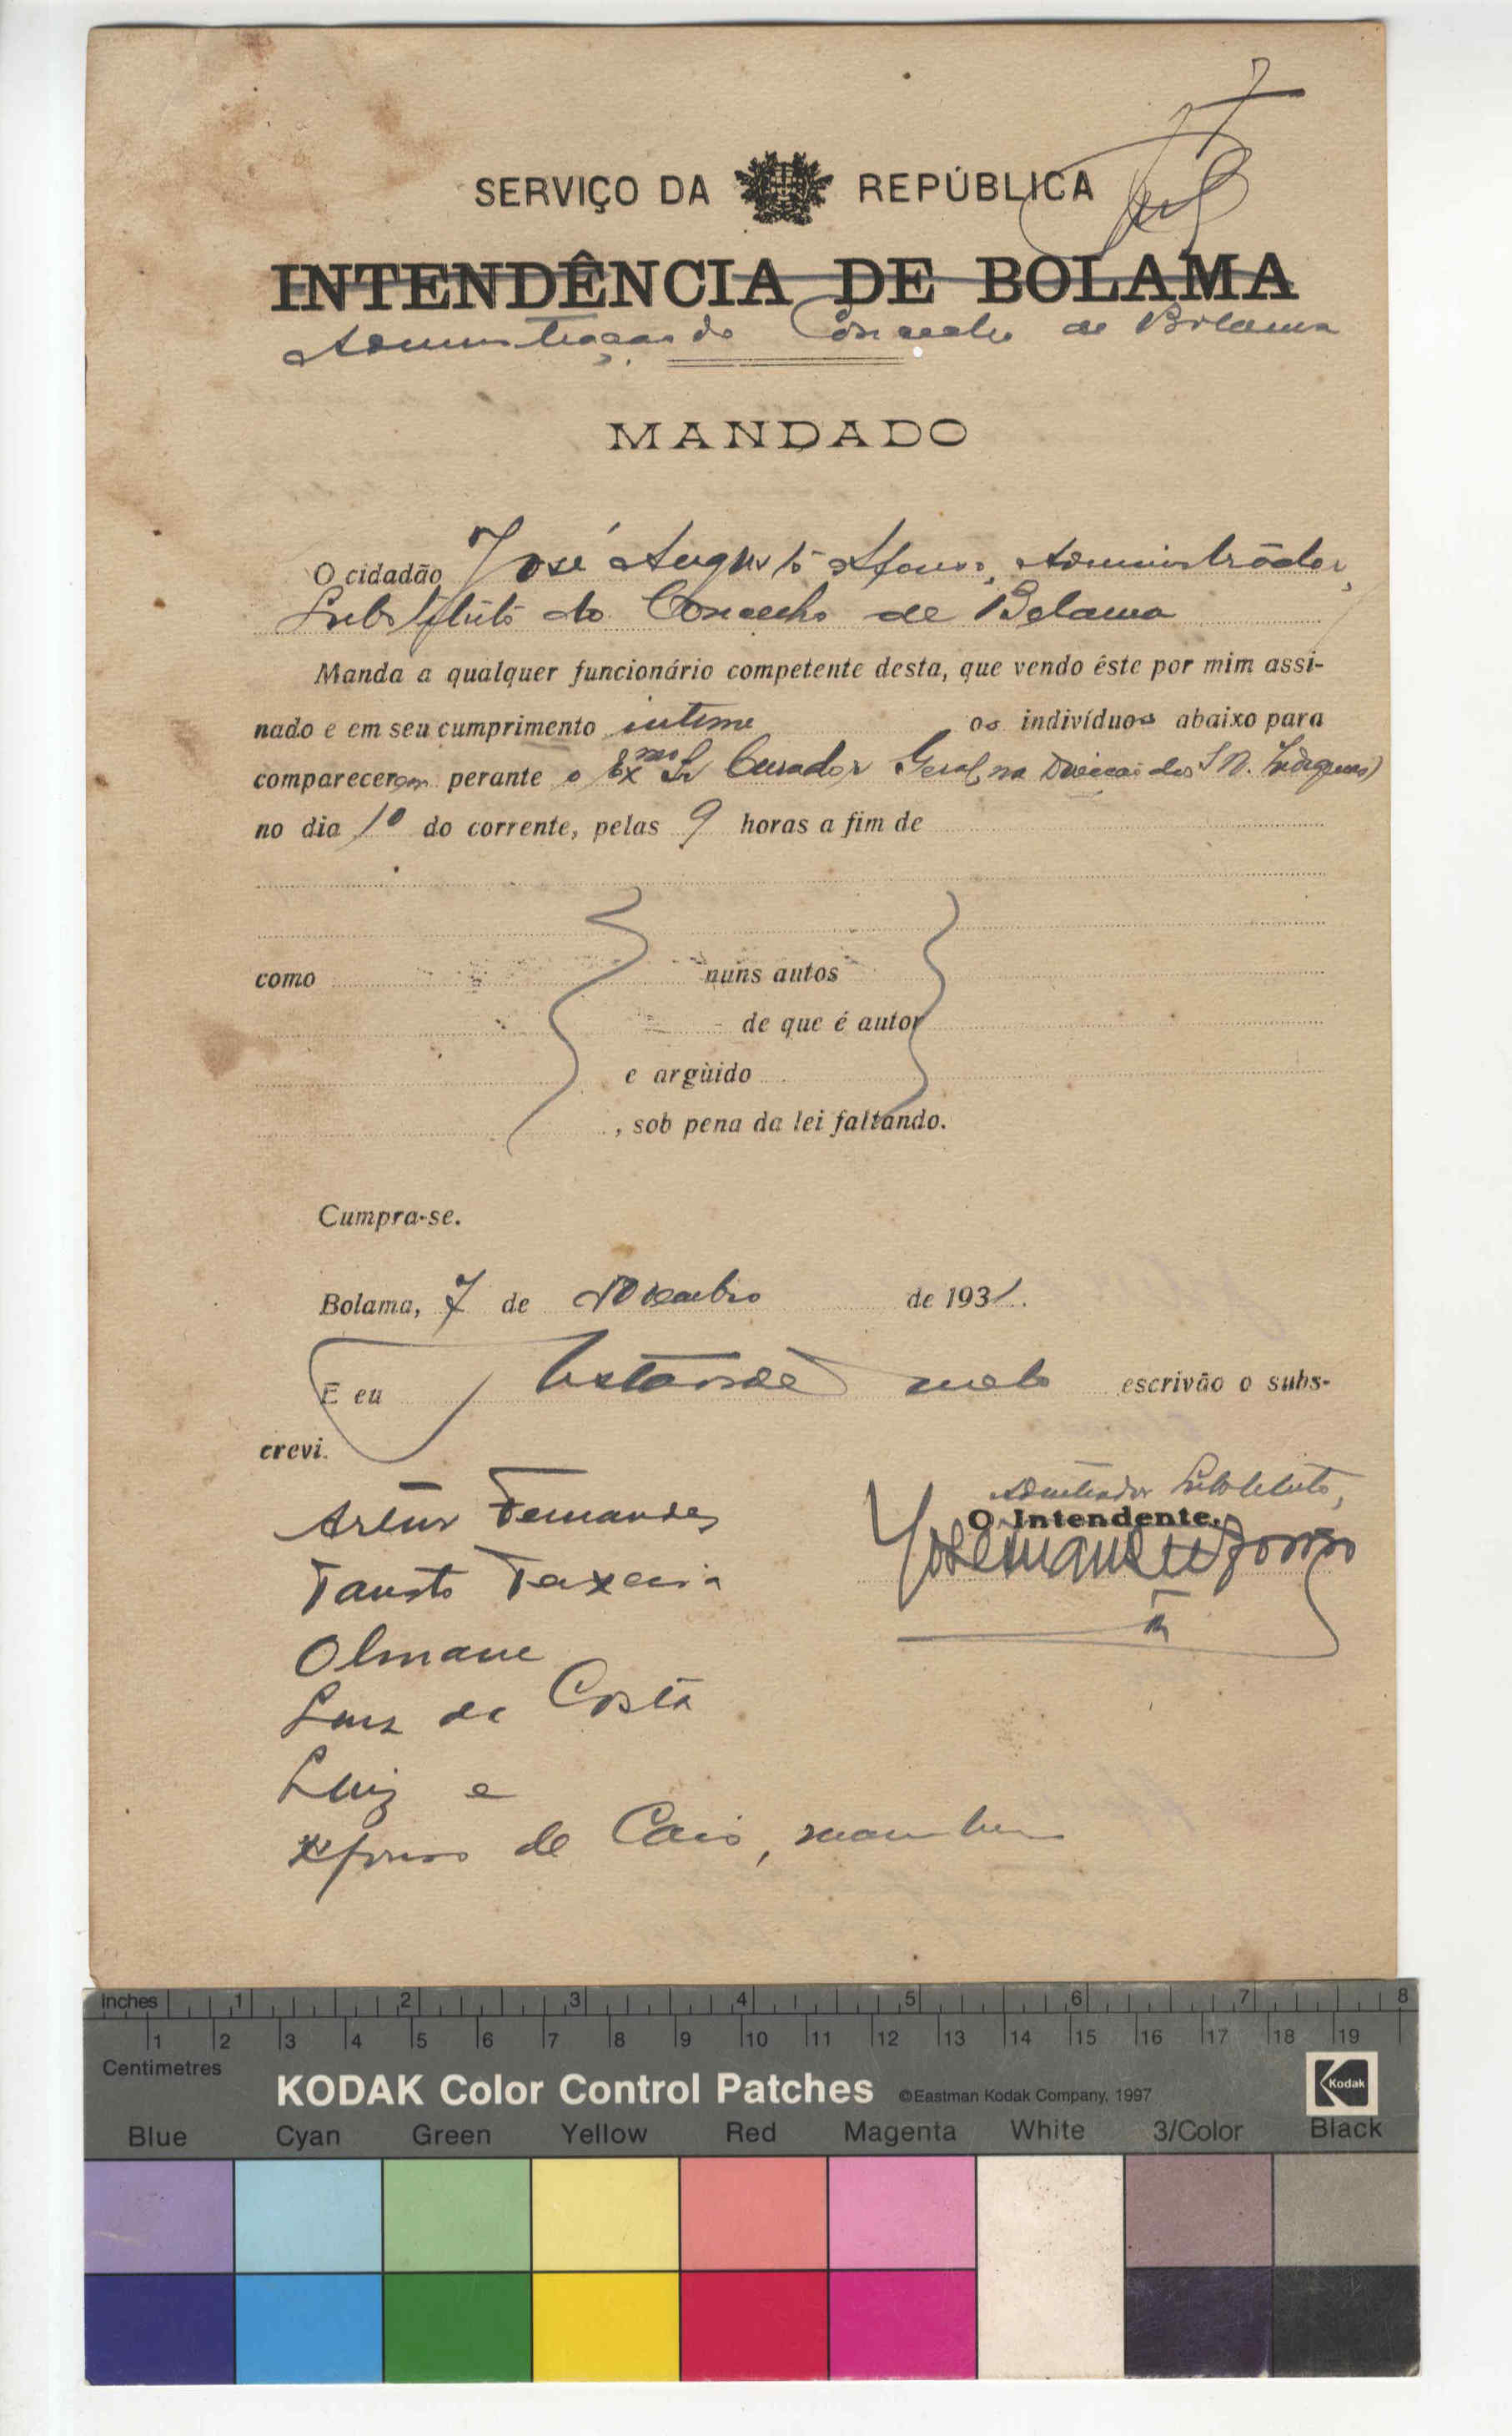 SERVIÇO DA REPÚBLICA
INTENDÊNCIA DE BOLAMA
Administração do Concelho de Bolama
MANDADO
O cidadão José Augusto Afonso, Administrador,
Substituto do Concelho de Bolama
Manda a qualquer funcionário competente desta, que vendo êste por mim assi-
nado e em seu cumprimento intime os indivíduos abaixo para
comparecerem perante o Exmo Sr Curador Geral, na Direcção dos S N. Indígenas)
no dia 10 do corrente, pelas 9 horas a fim de
como nuns autos
de que é autor
e argùido
, sob pena da lei faltando.
Cumpra-se.
Bolama, 7 de Novembro de 1931.
E eu escrivão o subs-
crevi.
Artur Fernandes
Administrador Substituto,
O Intendente,
Fausto Teixeira
Olmane
Luiz da Costa
Luiz e
Afonso de Caió,
inches 1 2 3 4 5 6 7 8
1 2 3 4 5 6 7 8 9 10 11 12 13 14 15 16 17 18 19
Centimetres
KODAK Color Control Patches ©Eastman Kodak Company, 1997 Kodak
Blue Cyan Green Yellow Red Magenta White 3/Color Black